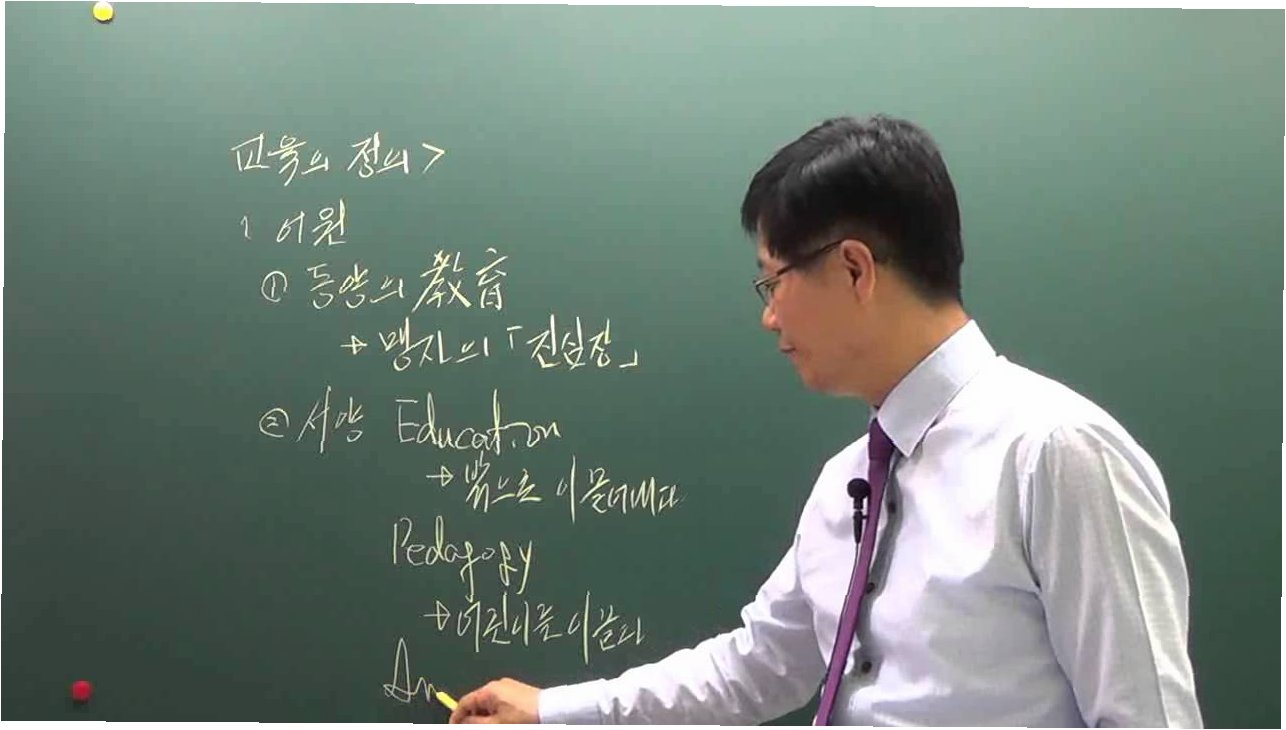 교육의 정의>
1 어원
① 동양의 敎育
→ 맹자의 「진심장」
② 서양 Education
→ 밖으로 이끌어내다
Pedagogy
→ 어린이를 이끌다
An